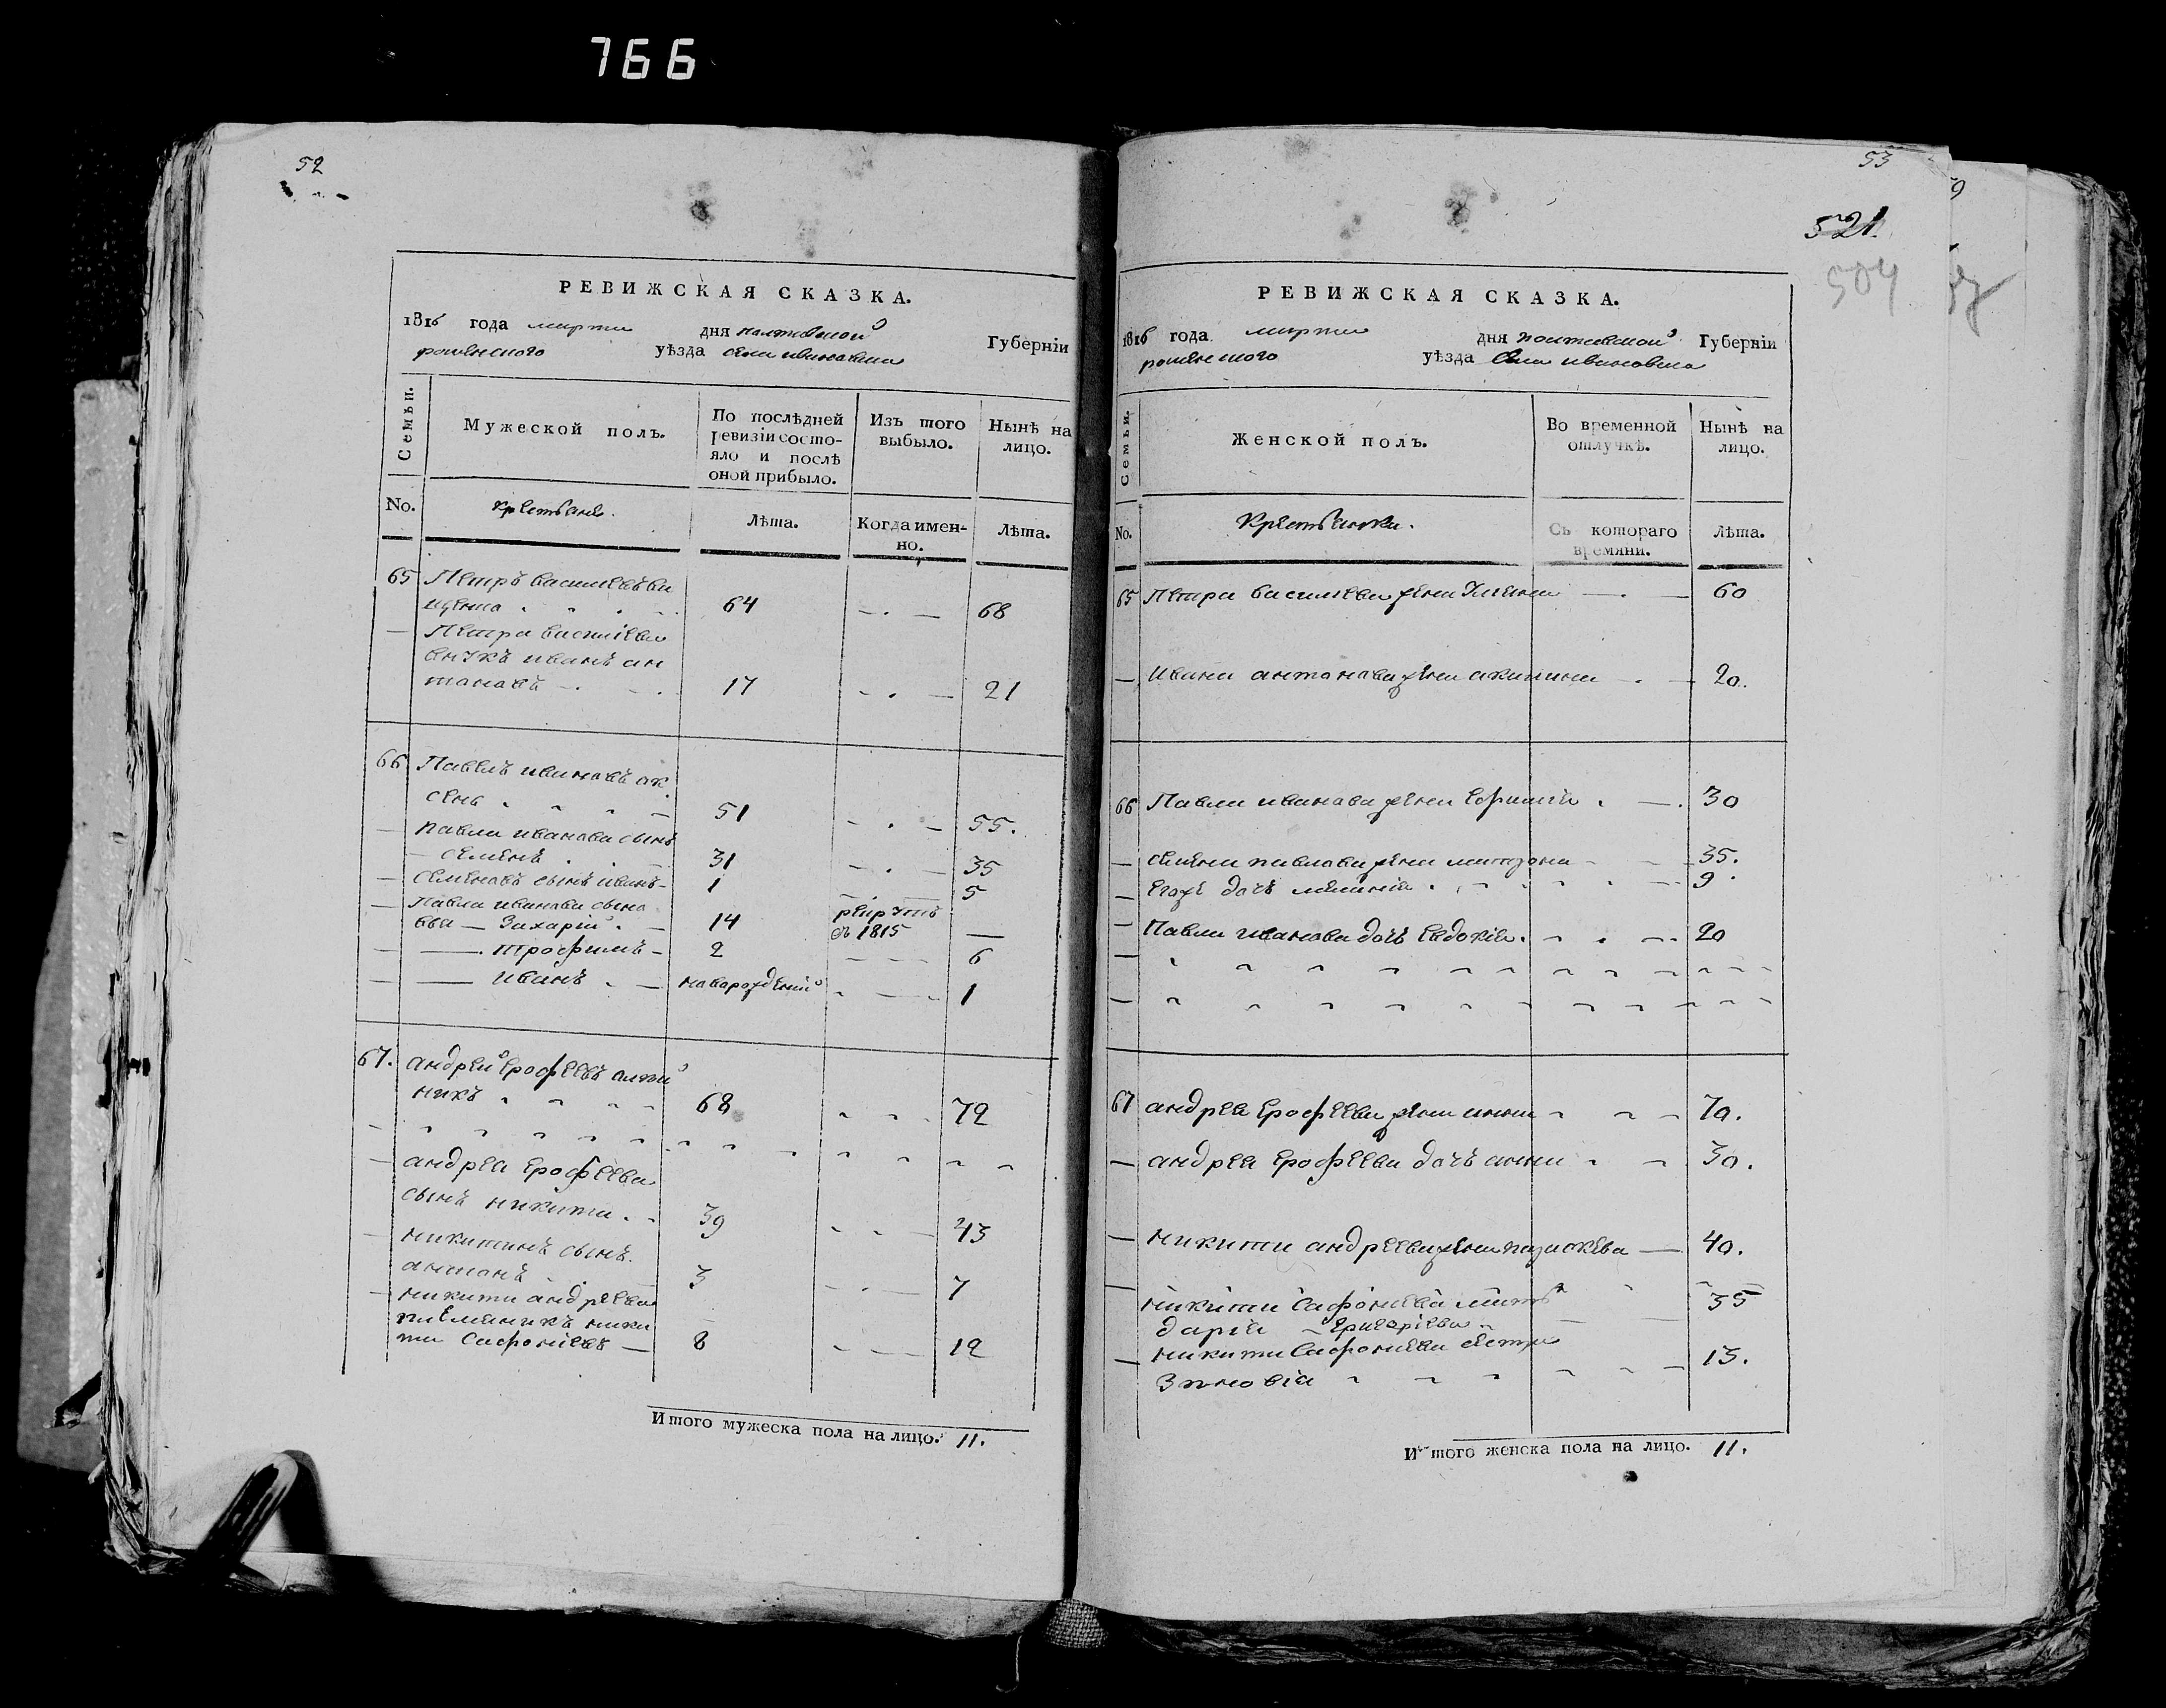 766
52
РЕВИЖСКАЯ СКАЗКА.
1816 года марта дня полтавской Губернiи
роменского уѣзда села ивановки
Семьи.
Мужеской полъ.
По послѣдней ревизiи состо-
яло и послѣ
оной прибыло.
Изъ того
выбыло.
Нынѣ на
лицо.
No.
крестьяне.
Лѣта.
Когда имен-
но.
Лѣта.
65 Петръ васильевъ
64 — . — 68
— Петра василева
внукъ иванъ ан
тоновъ — . 17 - . — 21
66 Павелъ ивановъ
51 - . — 55.
— павла иванова сынъ
— семенъ 31 — . — 35
— семеновъ сынъ иванъ - 1 5
— Павла иванова сыно
вья — Захарiй . — 14 рекрутъ
въ 1815 —
— —— . трофимъ - 2 6
— —— иванъ . — наворожденiй 1
67. андрей ерофеевъ
никъ 68 72
— андрея ерофеева
сынъ никита . . 39 43
— никитинъ сынъ.
антонъ 3 7
— никиты андреева
племяникъ ники
та сафонiевъ — 8 12
Итого мужеска пола на лицо. 11.
53
521.
504
РЕВИЖСКАЯ СКАЗКА.
1816 года марта дня полтавской Губернiи
роменского уѣзда села ивановки
Семьи.
Женской полъ.
Во временной
отлучкѣ.
Нынѣ на
лицо.
No.
Крестьянки.
Съ котораго
времяни.
Лѣта.
65 Петра василева жена Улияна — . — 60
— Ивана антонова жена акилина — . — 20.
66 Павла иванова жена Ефимия . — . 30
— семена павлова жена матрона 35.
— Егожъ дочь меланiя . 9
— Павла иванова дочь Евдокiя . 20
67 андрея Ерофеева жена анна 70.
— андрея Ерофеева дочь анна 30.
— никиты андреева жена параскева — 40.
— никиты сафониева мать
дарiя Григорiева 35
— никиты Сафониева сестра
Зиновiя 13.
Итого женска пола на лицо. 11.